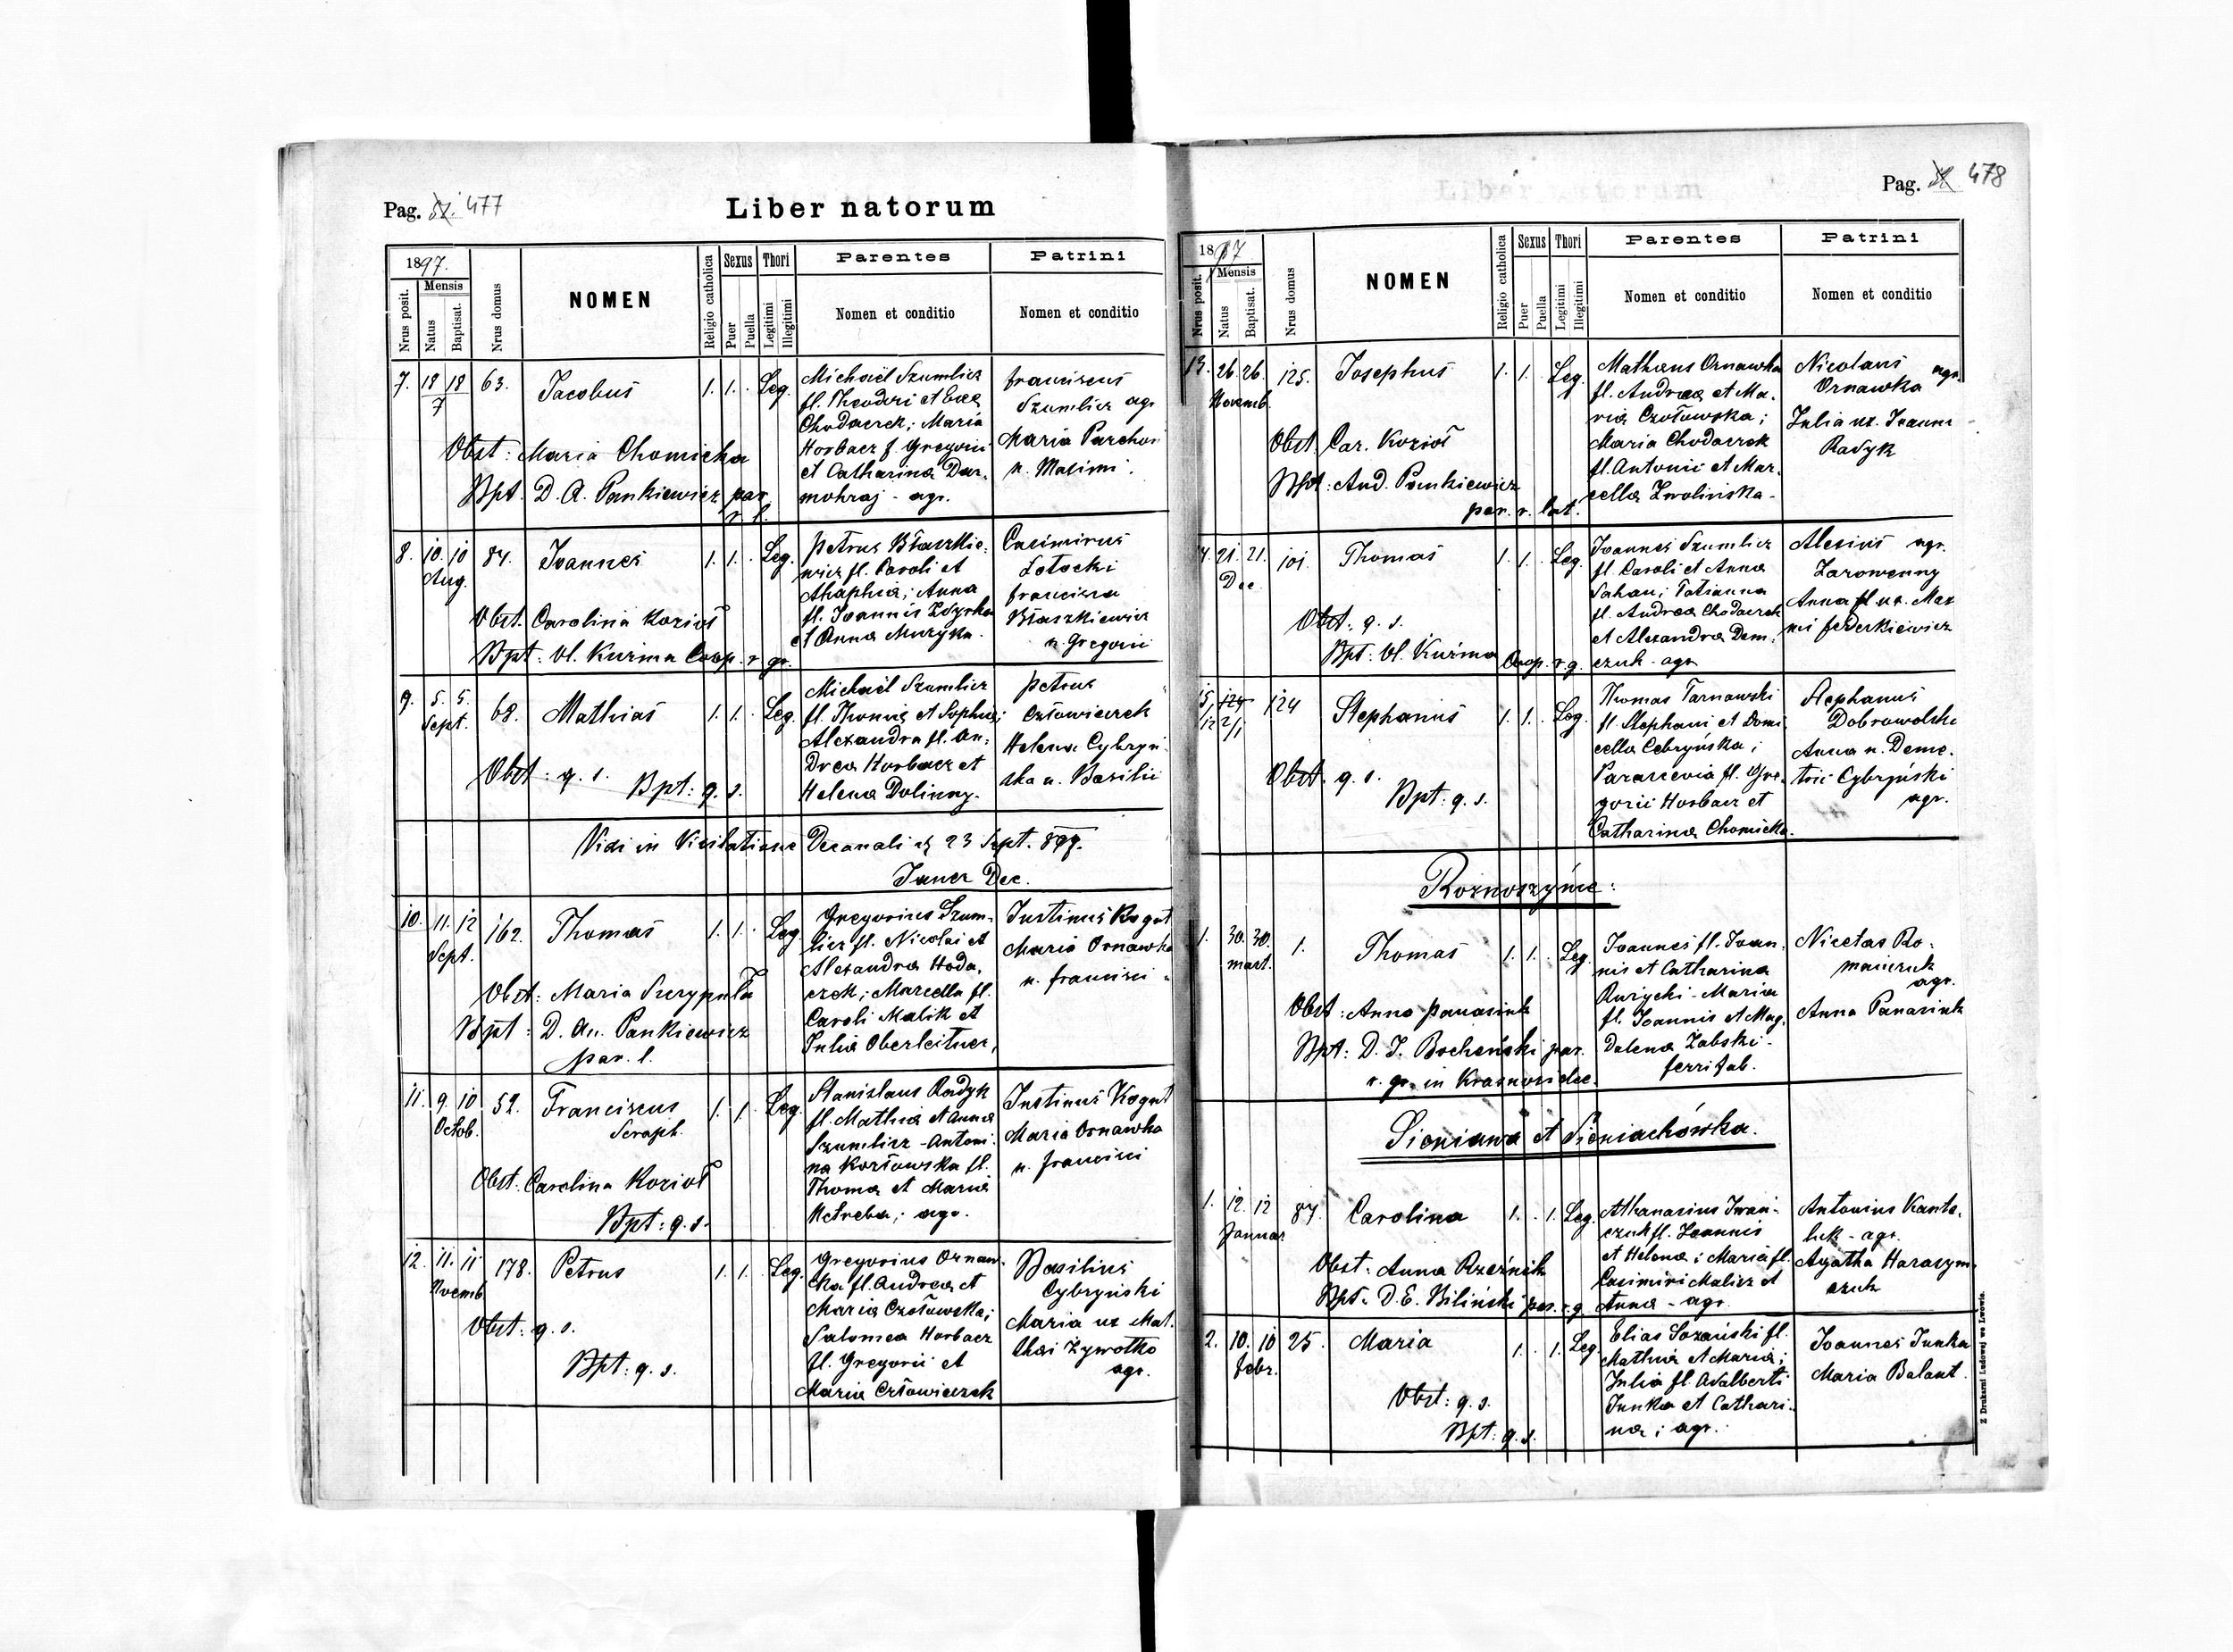 Pag. 477
Liber natorum
1897.
Nrus posit.
Mensis
Natus
Baptisat.
Nrus domus
NOMEN
Religio catholica
Sexus
Puer
Puella
Thori
Legitimi
Illegitimi
Parentes
Nomen et conditio
Patrini
Nomen et conditio
7. 18 18 63. Jacobus 1. 1. Leg.
7
Michaël Szumlicz
fl. Theodori et Evae
Chodaczek; Maria
Horbacz f. Gregorii
et Catharina Dar-
mohraj - agr.
franciscus
Szumlicz agr
Maria
u. Maximi.
Obst: Maria Chomicka
Bpt. D. A. Pankiewicz par.
r. l.
8. 10. 10 84. Joannes 1. 1. Leg.
Aug.
Petrus Błaszkie-
wicz fl. Caroli et
Ahaphia; Anna
fl. Joannis
et Anna Muzyka.
Casimirus
Zołocki
francisca
Błaszkiewicz
u. Gregorii
Obst. Carolina Kozioł
Bpt: Vl. Kuzma Coop. r. gr.
9. 5. 5. 68. Mathias 1. 1. Leg.
Sept.
Michaël Szumlicz
fl. Thomae et Sophia;
Alexandra fl. An-
drea Horbacz et
Helena Dolinny.
Petrus
Człowieczek
Helena Cybryń-
ska u. Basilii
Obst: q. s. Bpt: q. s.
Vidi in Visitatione Decanali d. 23 Sept. 897.
Dec.
10. 11. 12 162. Thomas 1. 1. Leg.
Sept.
Gregorius Szum-
licz fl. Nicolai et
Alexandra Hoda-
czek; Marcella fl.
Caroli Malik et
Julia Oberleitner,
Justinus Kogut
Maria Ornawka
u. francisci
Obst: Maria Szczypuła
Bpt: D. An. Pankiewicz
par. l.
11. 9. 10 52. Franciscus 1. 1. Leg.
Octob. Seraph.
Stanislaus Radyk
fl. Mathia et Anna
Szumlicz - Antoni-
na Kozłowska fl.
Thoma et Maria
Metreba; agr.
Justinus Kogut
Maria Ornawka
u. francisci
Obst. Carolina Kozioł
Bpt: q. s.
12. 11. 11 178. Petrus 1. 1. Leg.
Novemb
Gregorius Ornaw-
ka fl. Andrea et
Maria Czołowska;
Salomea Horbacz
fl. Gregorii et
Maria Człowieczek
Basilius
Cybryński
Maria ux Mat-
thaei Żywotko
agr.
Obst: q. s.
Bpt: q. s.
Pag. 478
1897
Nrus posit.
Mensis
Natus
Baptisat.
Nrus domus
NOMEN
Religio catholica
Sexus
Puer
Puella
Thori
Legitimi
Illegitimi
Parentes
Nomen et conditio
Patrini
Nomen et conditio
13. 26. 26. 125. Josephus 1. 1. Leg.
Novemb.
Mathaeus Ornawka
fl. Andrea et Ma-
ria Czołowska;
Maria Chodaczek
fl. Antonii et Mar-
cella Zwolińska -
Nicolaus agr.
Ornawka
Julia ux. Joanni
Radyk
Obst. Car. Kozioł
Bpt: And. Pankiewicz
par. r. lat.
21. 21. 101. Thomas 1. 1. Leg.
Dec.
Joannes Szumlicz
fl. Caroli et Anna
Sahan; Tatianna
fl. Andrea Chodaczek
et Alexandra Dem-
czuk - agr
Alexius agr.
Zarowenny
Anna ux. Max
mi federkiewicz
Obst: q. s.
Bpt: Vl. Kuzma Coop. r. g.
15, 124 124 Stephanus 1. 1. Leg.
12 2/1
Thomas Tarnawski
fl. Stephani et Domi-
cella Cebryńska;
Parascevia fl. Gre-
gorii Horbacz et
Catharina Chomicka.
Stephanus
Dobrowolski
Anna u. Deme-
trii Cybryński
agr.
Obst. q. s.
Bpt: q. s.
Roznoszyńce:
1. 30. 30. 1. Thomas 1. 1. Leg.
mart.
Joannes fl. Joan-
nis et Catharina
Rużycki - Maria
fl. Joannis et Mag-
dalena Zabski -
ferri fab.
Nicetas Ro-
maniczuk
agr.
Anna Panasiuk
Obst: Anna Panasiuk
Bpt: D. J. Bocheński par.
r. gr. in Krasnosielce.
Sieniawa et Sieniachówka.
1. 12. 12 87. Carolina 1. 1. Leg.
Januar
Athanasius Iwań-
czuk fl. Joannis
et Helena; Maria fl.
Casimiri Malicz et
Anna - agr.
Antonius Kanta-
luk - agr.
Agatha Harasym-
czuk
Obst: Anna Rzeźnik
Bpt: D. E. Biliński par. r. g.
2. 10. 10 25. Maria 1. 1. Leg.
febr.
Elias Sozański fl.
Mathia et Maria;
Julia fl. Adalberti
Junka et Cathari-
na; agr.
Joannes Junka
Maria Balant.
Obst: q. s.
Bpt: q. s.
Z Drukarni Ludowej we Lwowie.